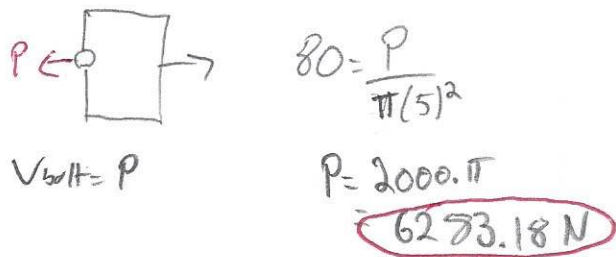 P
80 = P / π(5)²
Vbolt = P
P = 2000.π
= 6283.18 N